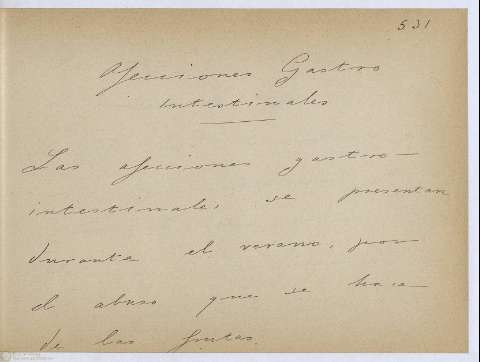 531
Afecciones Gastro
Intestinales
Las afecciones gastro-
intestinale, se presentan
durante el verano, por
el abuso que se hace
de las frutas.